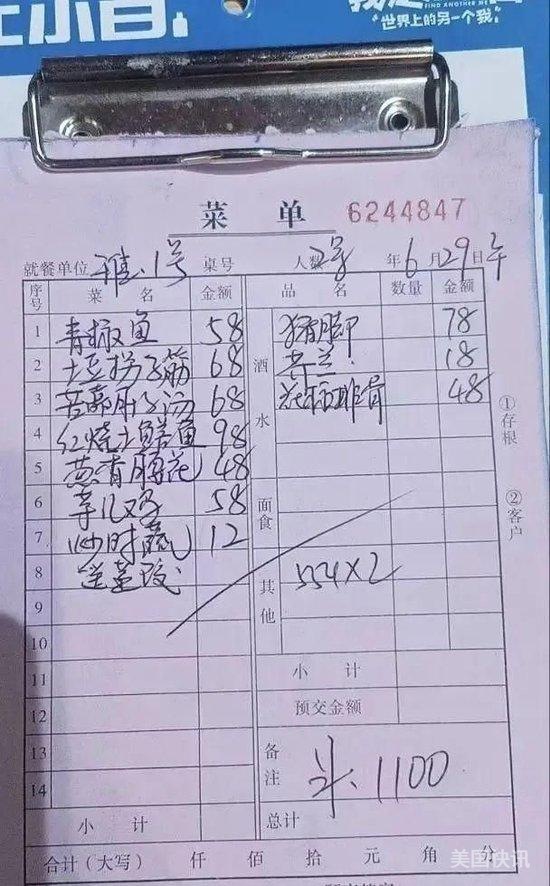 小百
我是
FIND ANOTHER ME
"世界上的另一个我"
菜 单 6244847
就餐单位 雅.1号 桌号 人数 2桌 年6月29日午
序号 菜 名 金额 品 名 数量 金额
1 青椒鱼 58 酒水 猪脚 78
2 土豆拐子筋 68 18
3 苦藠肚子汤 68 花椒排骨 48
4 红烧土鳝鱼 98
5 葱香腰花 48
6 芋儿鸡 58 面食
7 炒时蔬 12
8 其他 554×2
9
10
11 小 计
12 预交金额
13 备注 斗:1100
14
小 计 总计
合计(大写) 仟 佰 拾 元 角 分
①存根 ②客户
美国快讯